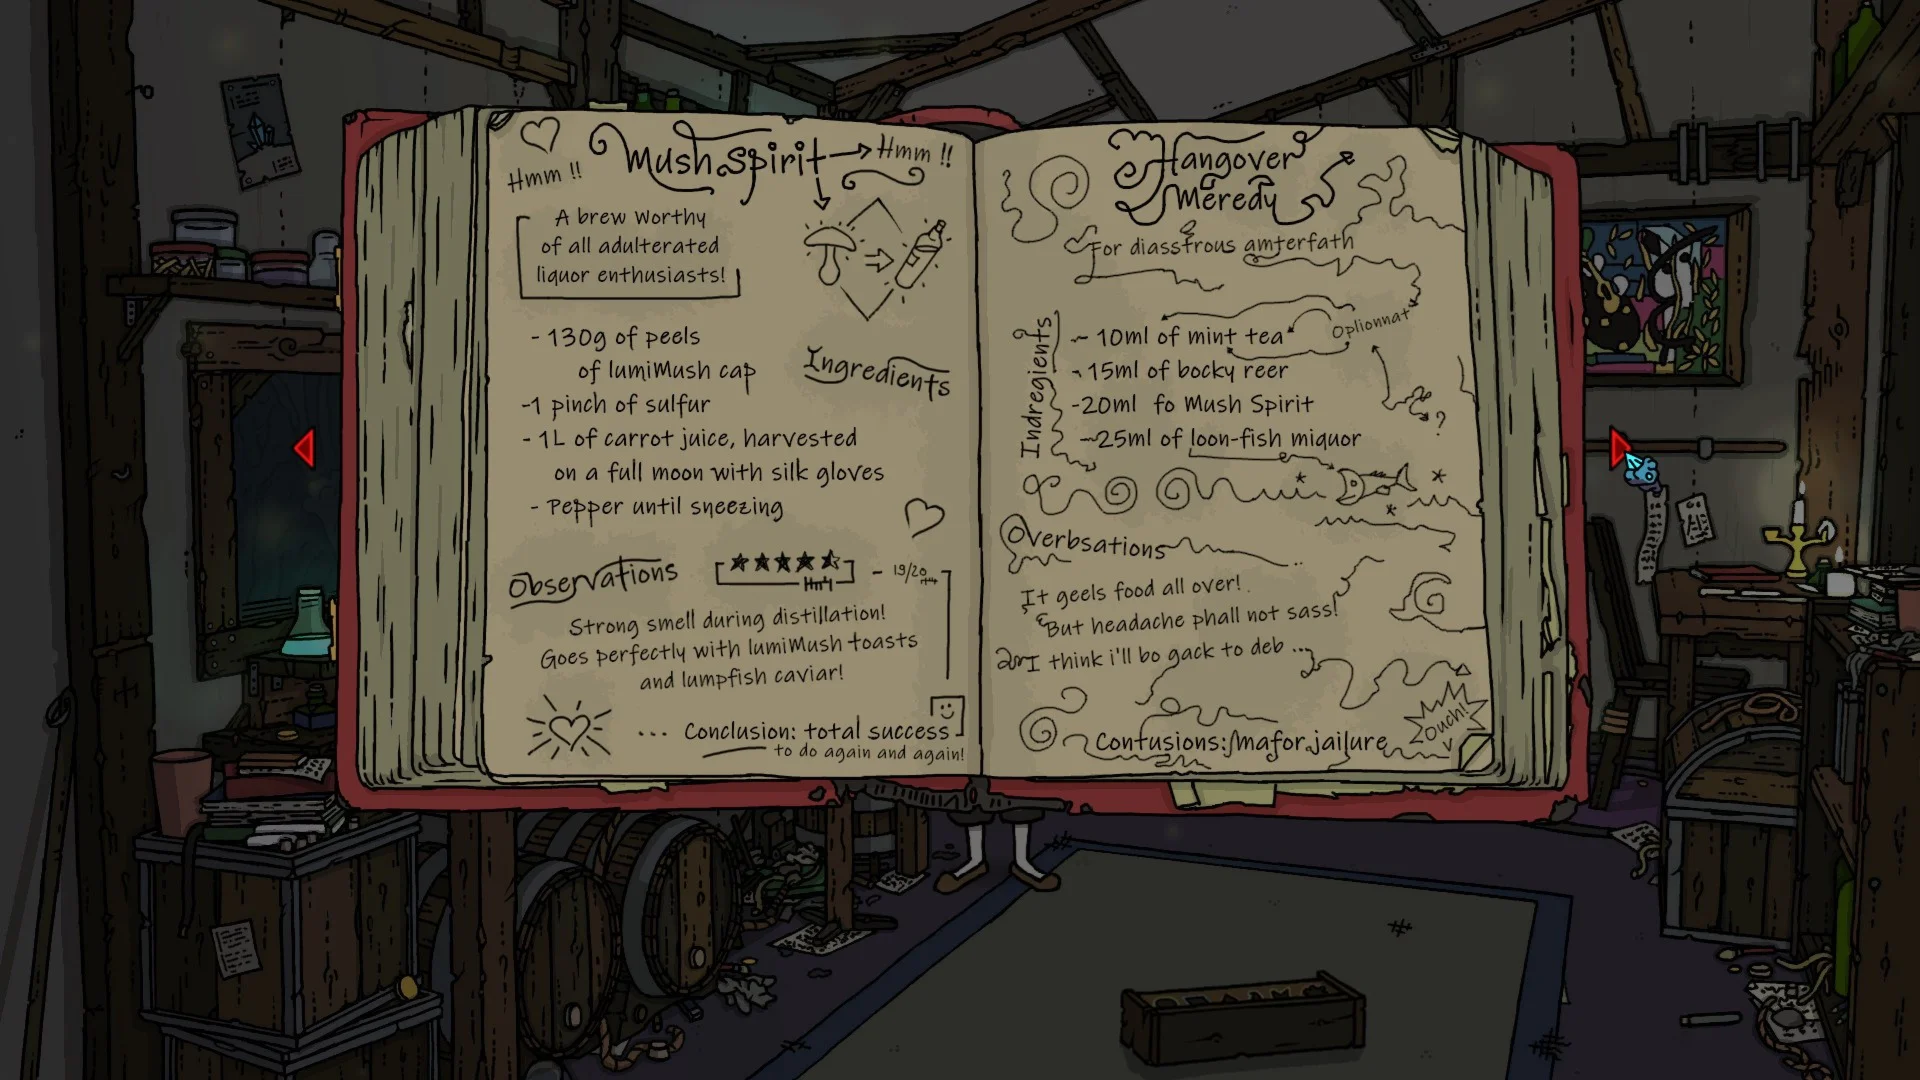 Mush Spirit
Hmm !!
Hmm !!
A brew worthy
of all adulterated
liquor enthusiasts!
Ingredients
- 130g of peels
of lumiMush cap
-1 pinch of sulfur
- 1L of carrot juice, harvested
on a full moon with silk gloves
- Pepper until sneezing
Observations
- 19/20
Strong smell during distillation!
Goes perfectly with lumiMush toasts
and lumpfish caviar!
... Conclusion: total success
to do again and again!
Hangover
Meredy
For diasstrous amterfath
Indregients
- 10ml of mint tea
Oplionnat
?
- 15ml of bocky reer
-20ml fo Mush Spirit
-25ml of loon-fish miquor
Overbsations
It geels food all over!
But headache phall not sass!
I think i'll bo gack to deb ...
Confusions: mafor jailure
Ouch!